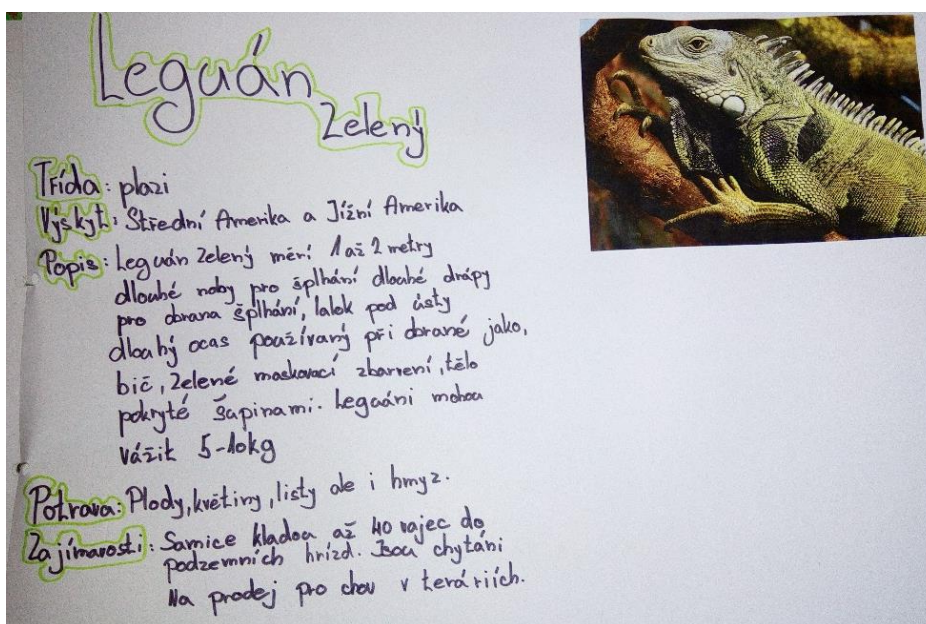 Leguán
Zelený
Třída: plazi
Výskyt: Střední Amerika a Jížní Amerika
Popis: Leguán Zelený měrí 1 až 2 metry
dlouhé nohy pro šplhání dlouhé drápy
pro obrana šplhání, lalok pod ústy
dlouhý ocas používaný při obraně jako,
bič, Zelené maskovací zbarvení, tělo
pokryté šupinami. Leguáni mohou
vážit 5-10kg
Potrava: Plody, květiny, listy ale i hmyz.
Zajímavosti: Samice kladou až 40 vajec do
podzemních hnízd. Jsou chytáni
Na prodej pro chov v teráriích.